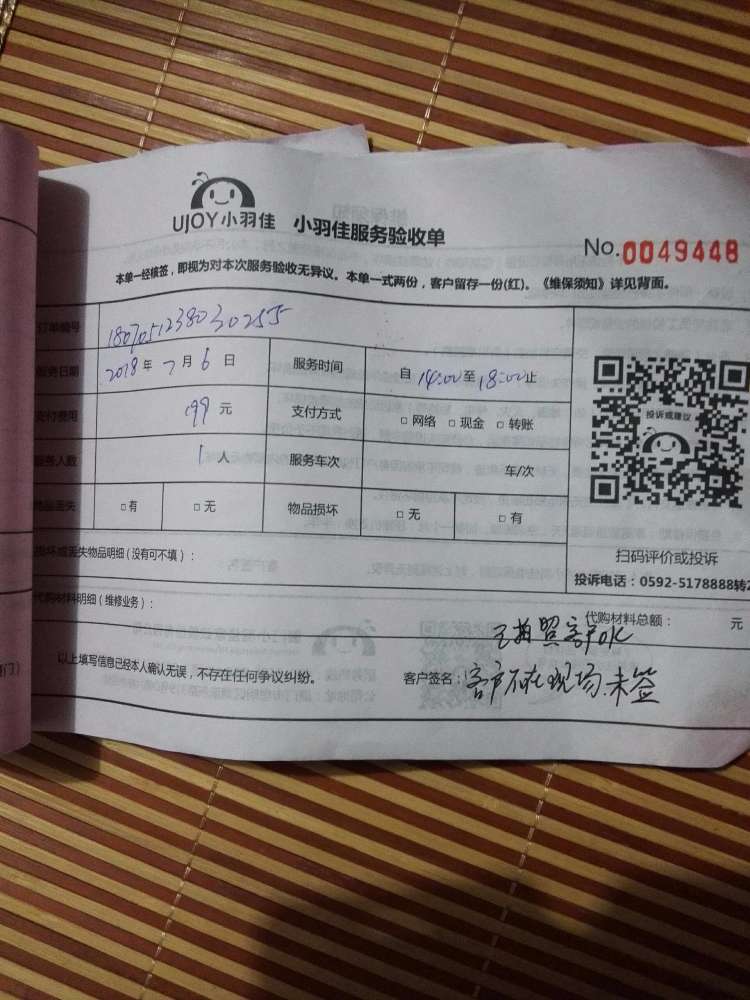 UJOY小羽佳 小羽佳服务验收单
No.0049448
本单一经核签，即视为对本次服务验收无异议。本单一式两份，客户留存一份(红)。《维保须知》详见背面。
订单编号 1807051238030255
服务日期 2018年7月6日 服务时间 自14:00至18:00止
支付费用 199元 支付方式 □网络 □现金 □转账
服务人数 1人 服务车次 车/次
物品丢失 □有 □无 物品损坏 □无 □有
投诉或建议
扫码评价或投诉
投诉电话：0592-5178888转2
损坏或丢失物品明细(没有可不填)：
代购材料明细(维修业务)： 代购材料总额： 元
拍照客户
以上填写信息已经本人确认无误，不存在任何争议纠纷。 客户签名：客户不在现场.未签